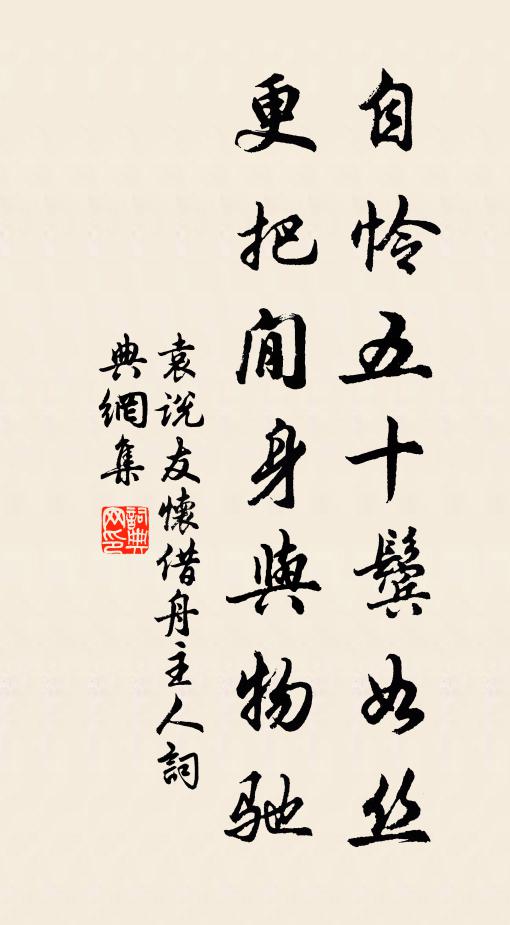 自怜五十鬓如丝
更把闲身与物驰
袁说友懷借舟主人詞
典網集
詞典网印